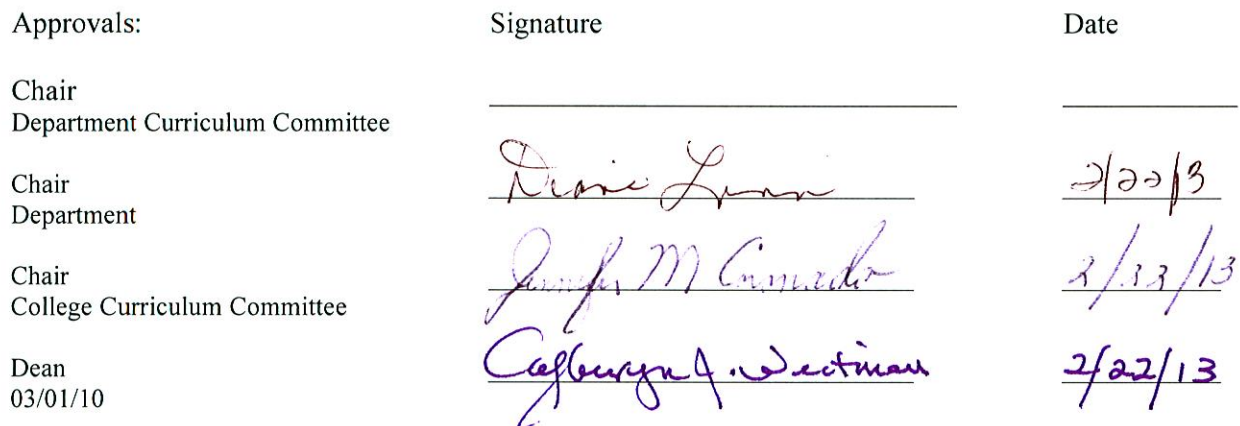 Approvals: Signature Date
Chair
Department Curriculum Committee
Chair
Department
Diane 2/22/13
Chair
College Curriculum Committee
Jennifer M 2/22/13
Dean
03/01/10
J. 2/22/13